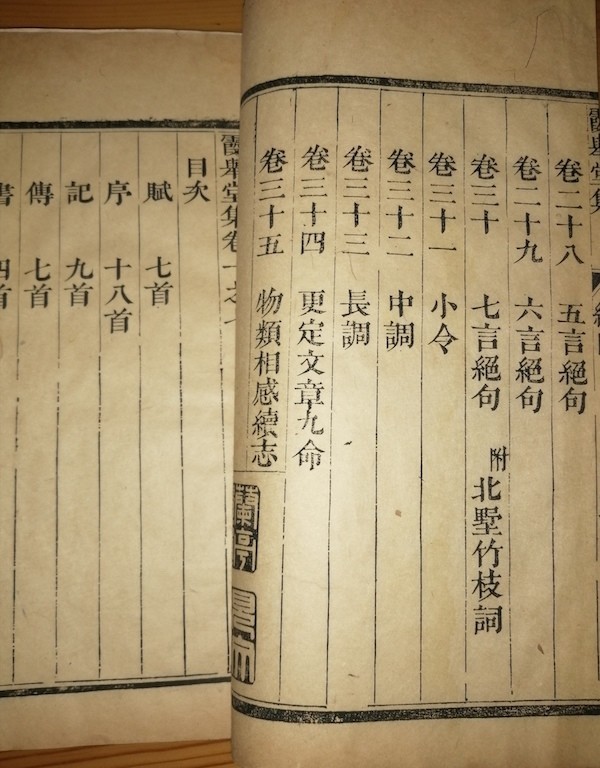 霞舉堂集
卷二十八 五言絕句
卷二十九 六言絕句
卷三十 七言絕句 附北墅竹枝詞
卷三十一 小令
卷三十二 中調
卷三十三 長調
卷三十四 更定文章九命
卷三十五 物類相感續志
蘭亭
霞舉堂集卷一之
目次
賦 七首
序 十八首
記 九首
傳 七首
書 四首